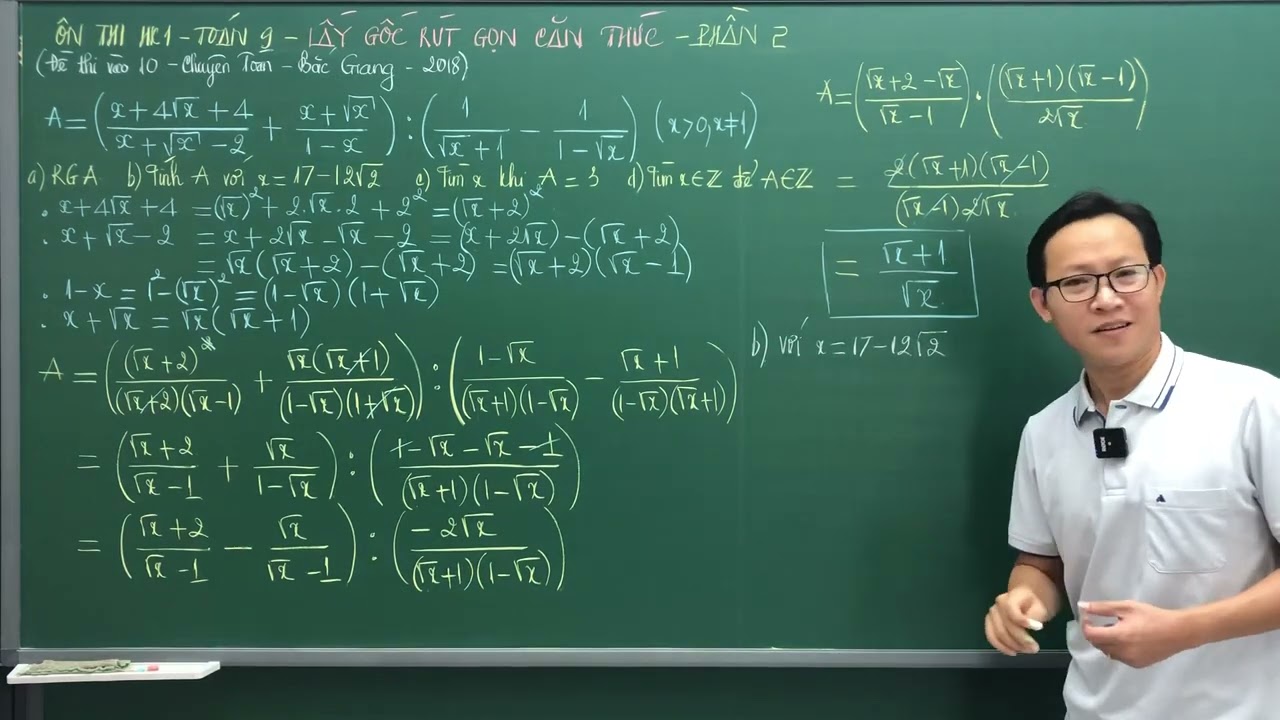 ÔN THI HK1 - TOÁN 9 - LẤY GỐC RÚT GỌN CĂN THỨC - PHẦN 2
(Đề thi vào 10 - Chuyên Toán - Bắc Giang - 2018)
A = ((x+4√x+4)/(x+√x-2) + (x+√x)/(1-x)) : (1/(√x+1) - 1/(1-√x)) (x>0, x≠1)
a) RGA b) Tính A với x = 17-12√2 c) Tìm x khi A = 3 d) Tìm x∈Z để A∈Z
. x+4√x+4 = (√x)² + 2.√x.2 + 2² = (√x+2)²
. x+√x-2 = x+2√x-√x-2 = (x+2√x)-(√x+2)
= √x(√x+2)-(√x+2) = (√x+2)(√x-1)
. 1-x = 1²-(√x)² = (1-√x)(1+√x)
. x+√x = √x(√x+1)
A = ((√x+2)²/((√x+2)(√x-1)) + √x(√x+1)/((1-√x)(1+√x))) : ((1-√x)/((√x+1)(1-√x)) - (√x+1)/((1-√x)(√x+1)))
= ((√x+2)/(√x-1) + √x/(1-√x)) : ((1-√x-√x-1)/((√x+1)(1-√x)))
= ((√x+2)/(√x-1) - √x/(√x-1)) : (-2√x/((√x+1)(1-√x)))
A = ((√x+2-√x)/(√x-1)) . ((√x+1)(√x-1)/(2√x))
= 2(√x+1)(√x-1)/((√x-1)2√x)
= (√x+1)/√x
b) Với x = 17-12√2